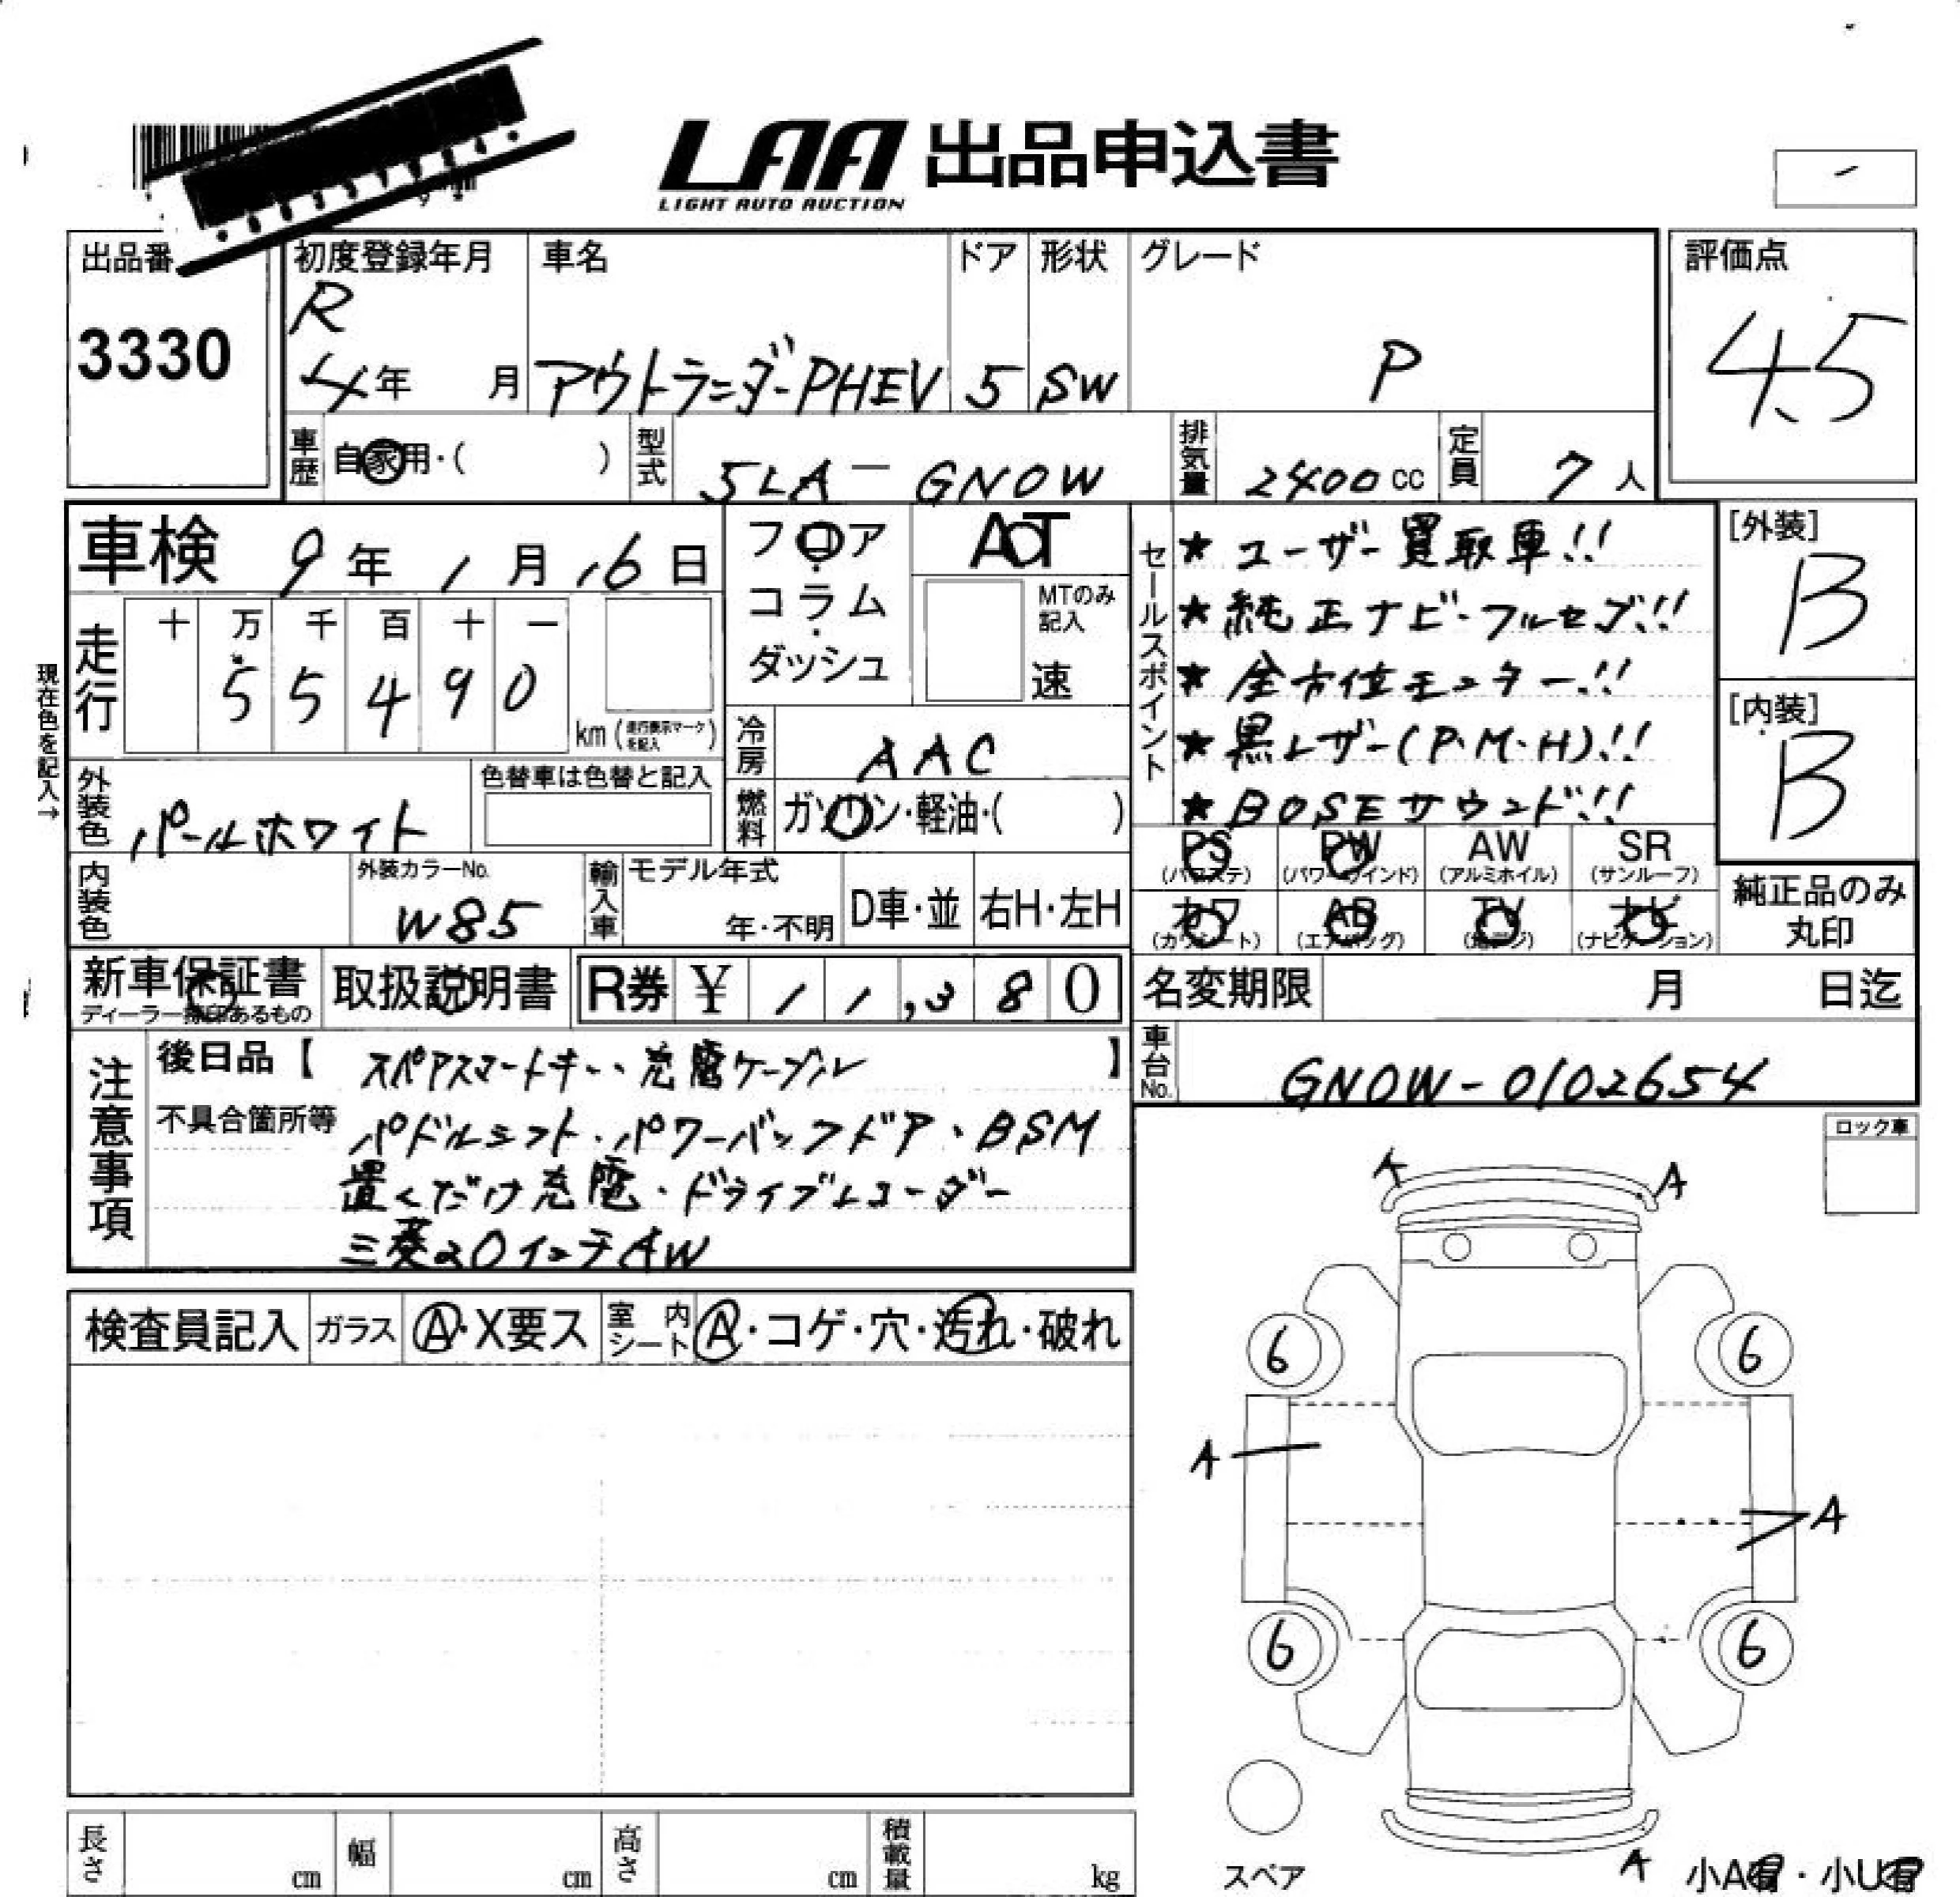 LAA 出品申込書
LIGHT AUTO AUCTION
出品番
3330
初度登録年月
R
4年 月
車名
アウトランダーPHEV
ドア
5
形状
SW
グレード
P
評価点
4.5
車歴 自家用・( )
型式 5LA-GN0W
排気量 2400cc
定員 7人
車検 9年1月16日
フロア・コラム・ダッシュ
AT
MTのみ記入
速
セールスポイント
★ユーザー買取車!!
★純正ナビ・フルセグ!!
★全方位モニター!!
★黒レザー(P・M・H)!!
★BOSEサウンド!!
[外装]
B
[内装]
B
現在色を記入→
走行
十 万 千 百 十 一
5 5 4 9 0
km(走行表示マークを記入)
冷房 AAC
燃料 ガソリン・軽油・( )
外装色 パールホワイト
色替車は色替と記入
内装色
外装カラーNo.
W85
輸入車
モデル年式
年・不明
D車・並
右H・左H
PS (パワステ)
PW (パワーウインド)
AW (アルミホイル)
SR (サンルーフ)
カワ (カワシート)
AB (エアバッグ)
TV (地デジ)
ナビ (ナビゲーション)
純正品のみ丸印
新車保証書
ディーラー捺印あるもの
取扱説明書
R券 ¥11,380
名変期限 月 日迄
車台No. GN0W-0102654
注意事項
後日品【スペアスマートキー、充電ケーブル】
不具合箇所等
パドルシフト・パワーバックドア・BSM
置くだけ充電・ドライブレコーダー
三菱20インチAW
ロック車
検査員記入
ガラス A・X要ス
室内シート A・コゲ・穴・汚れ・破れ
A A
6 6
A
A
6 6
スペア
A 小A有・小U有
長さ cm
幅 cm
高さ cm
積載量 kg